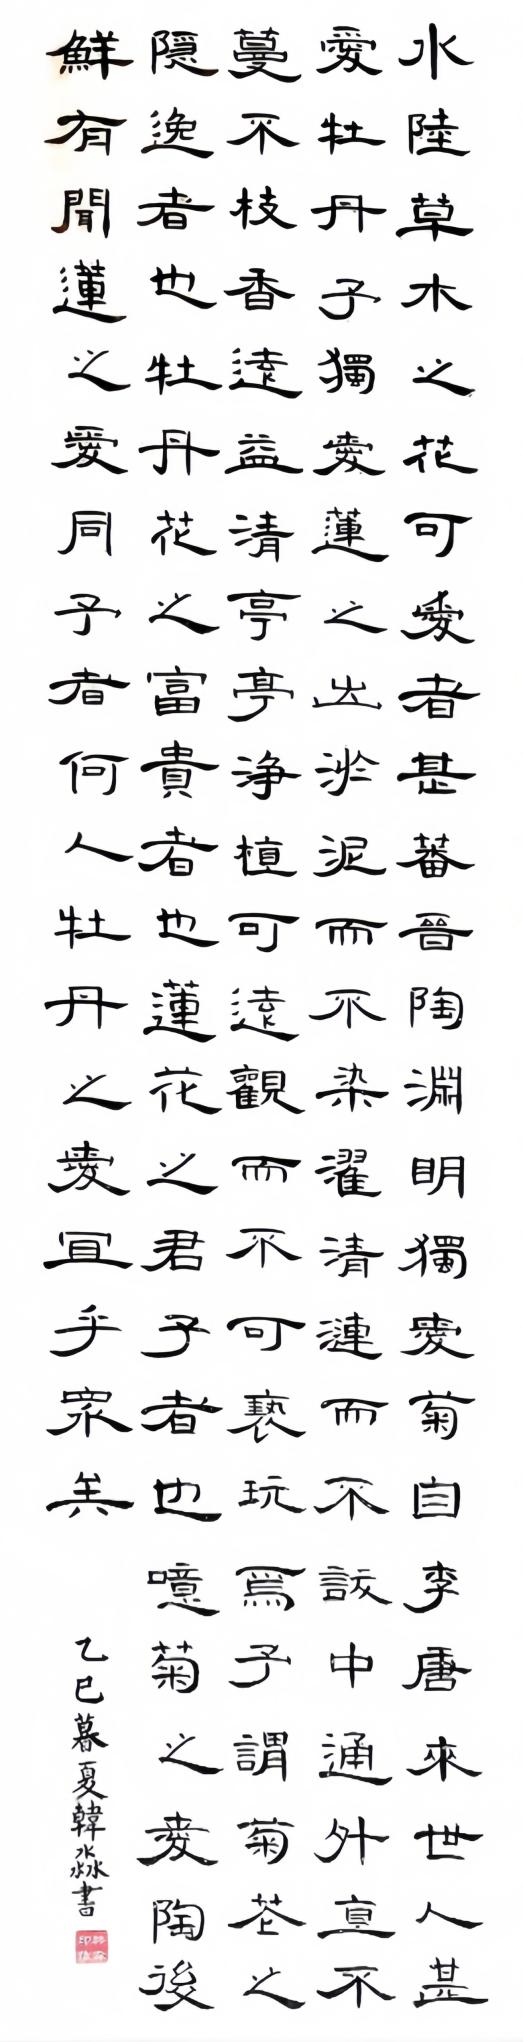 水陸草木之花可愛者甚蕃晉陶淵明獨愛菊自李唐來世人甚
愛牡丹予獨愛蓮之出淤泥而不染濯清漣而不訞中通外直不
蔓不枝香遠益清亭亭浄植可遠觀而不可褻玩焉予謂菊花之
隱逸者也牡丹花之富貴者也蓮花之君子者也噫菊之愛陶後
鮮有聞蓮之愛同予者何人牡丹之愛宜乎眾矣
乙巳暮夏韓淼書